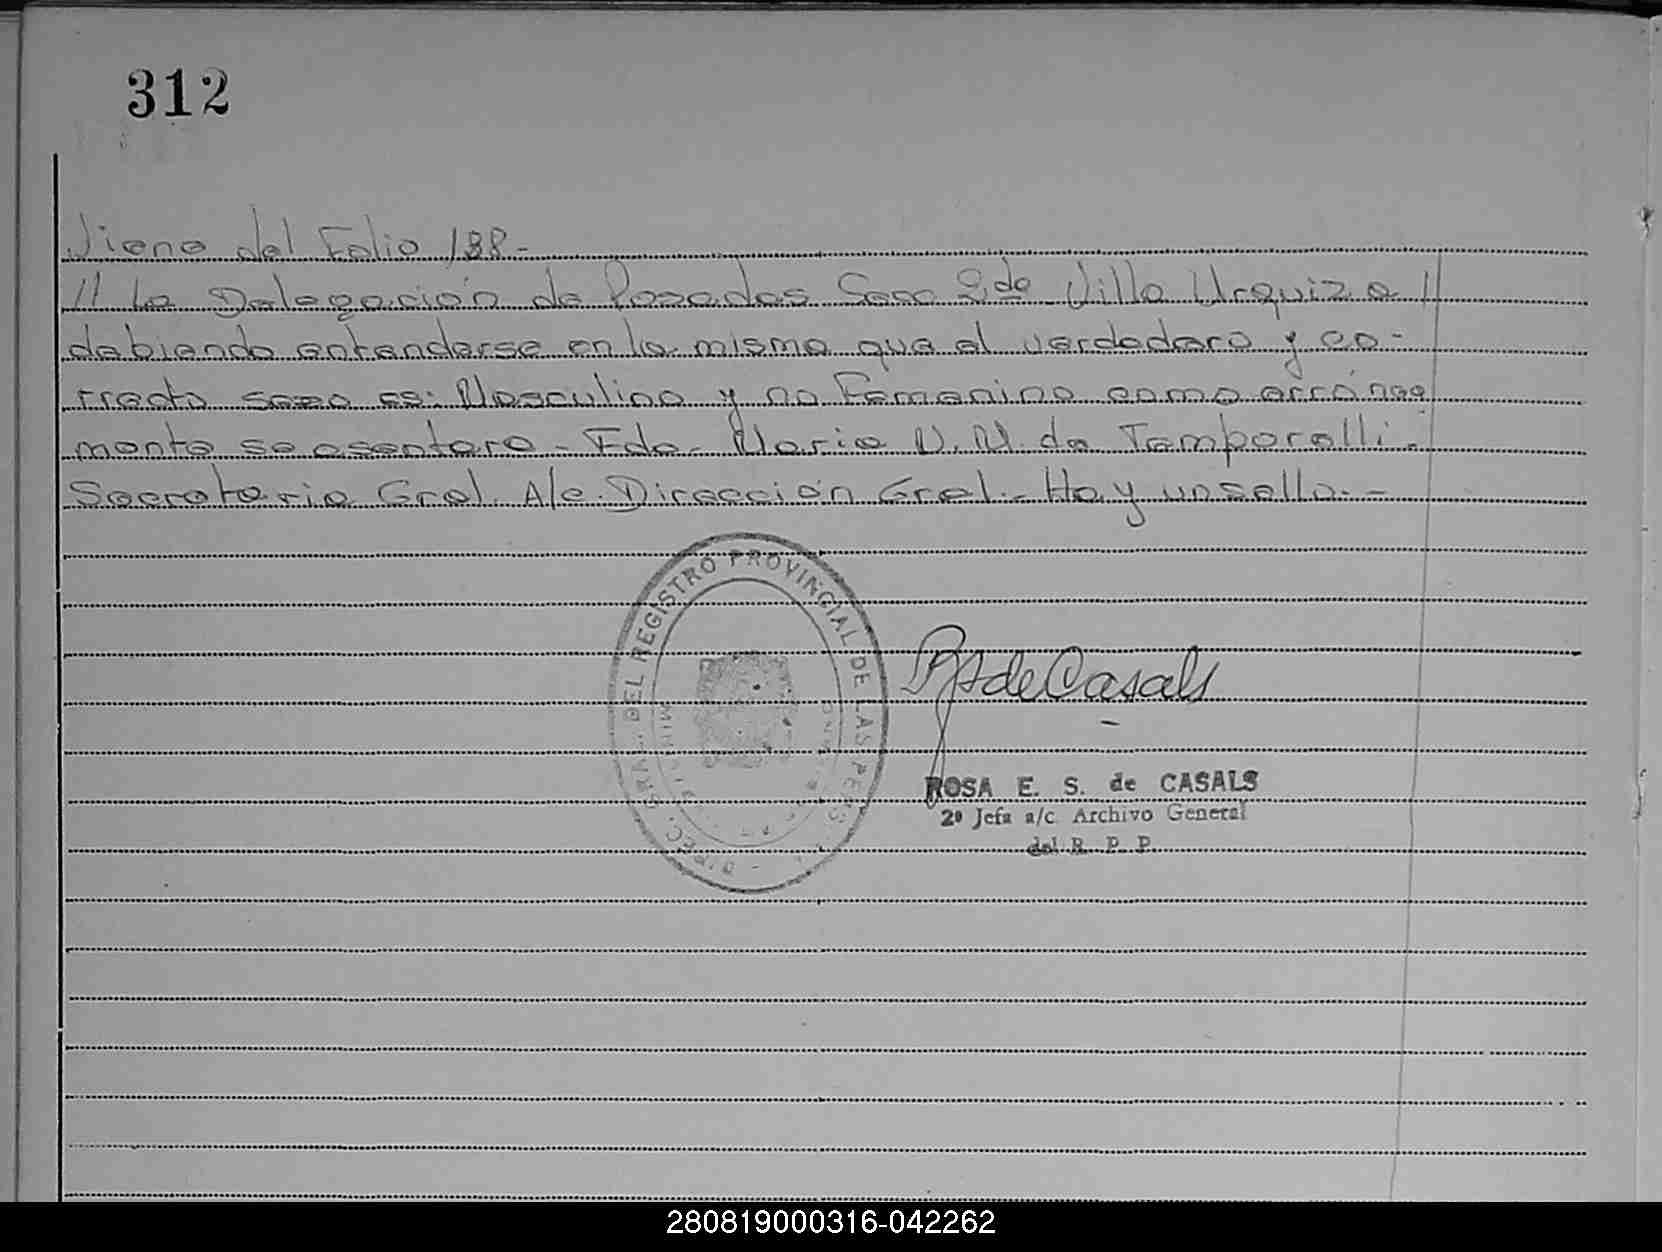 312
Viene del Folio 188.-
// La Delegación de Posadas Secc 2da Villa Urquiza //
debiendo entenderse en la misma que el verdadero y co-
rrecto sexo es: Masculino y no Femenino como erronea
mente se asentara - Fdo. Maria N. N. de Temporelli.
Secretaria Gral. A/c. Dirección Gral.- Hay un sello.-
DIREC. GRAL. DEL REGISTRO PROVINCIAL DE LAS PERS.
R S de Casals
ROSA E. S. de CASALS
2º Jefa a/c Archivo General
del R. P. P.
280819000316-042262